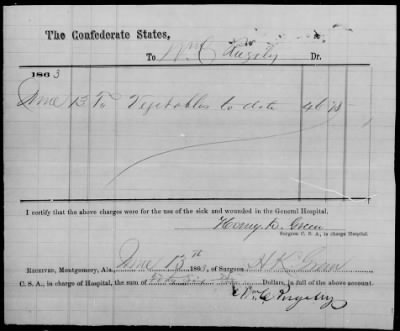 The Confederate States,
To Wm C Dr.
1863
June 13 To Vegetables to date
I certify that the above charges were for the use of the sick and wounded in the General Hospital.
Henry K. Green
Surgeon C. S. A., in charge Hospital.
June 13th
RECEIVED, Montgomery, Ala., 1863, of Surgeon H K Green
C. S. A., in charge of Hospital, the sum of Dollars, in full of the above account.
Wm C